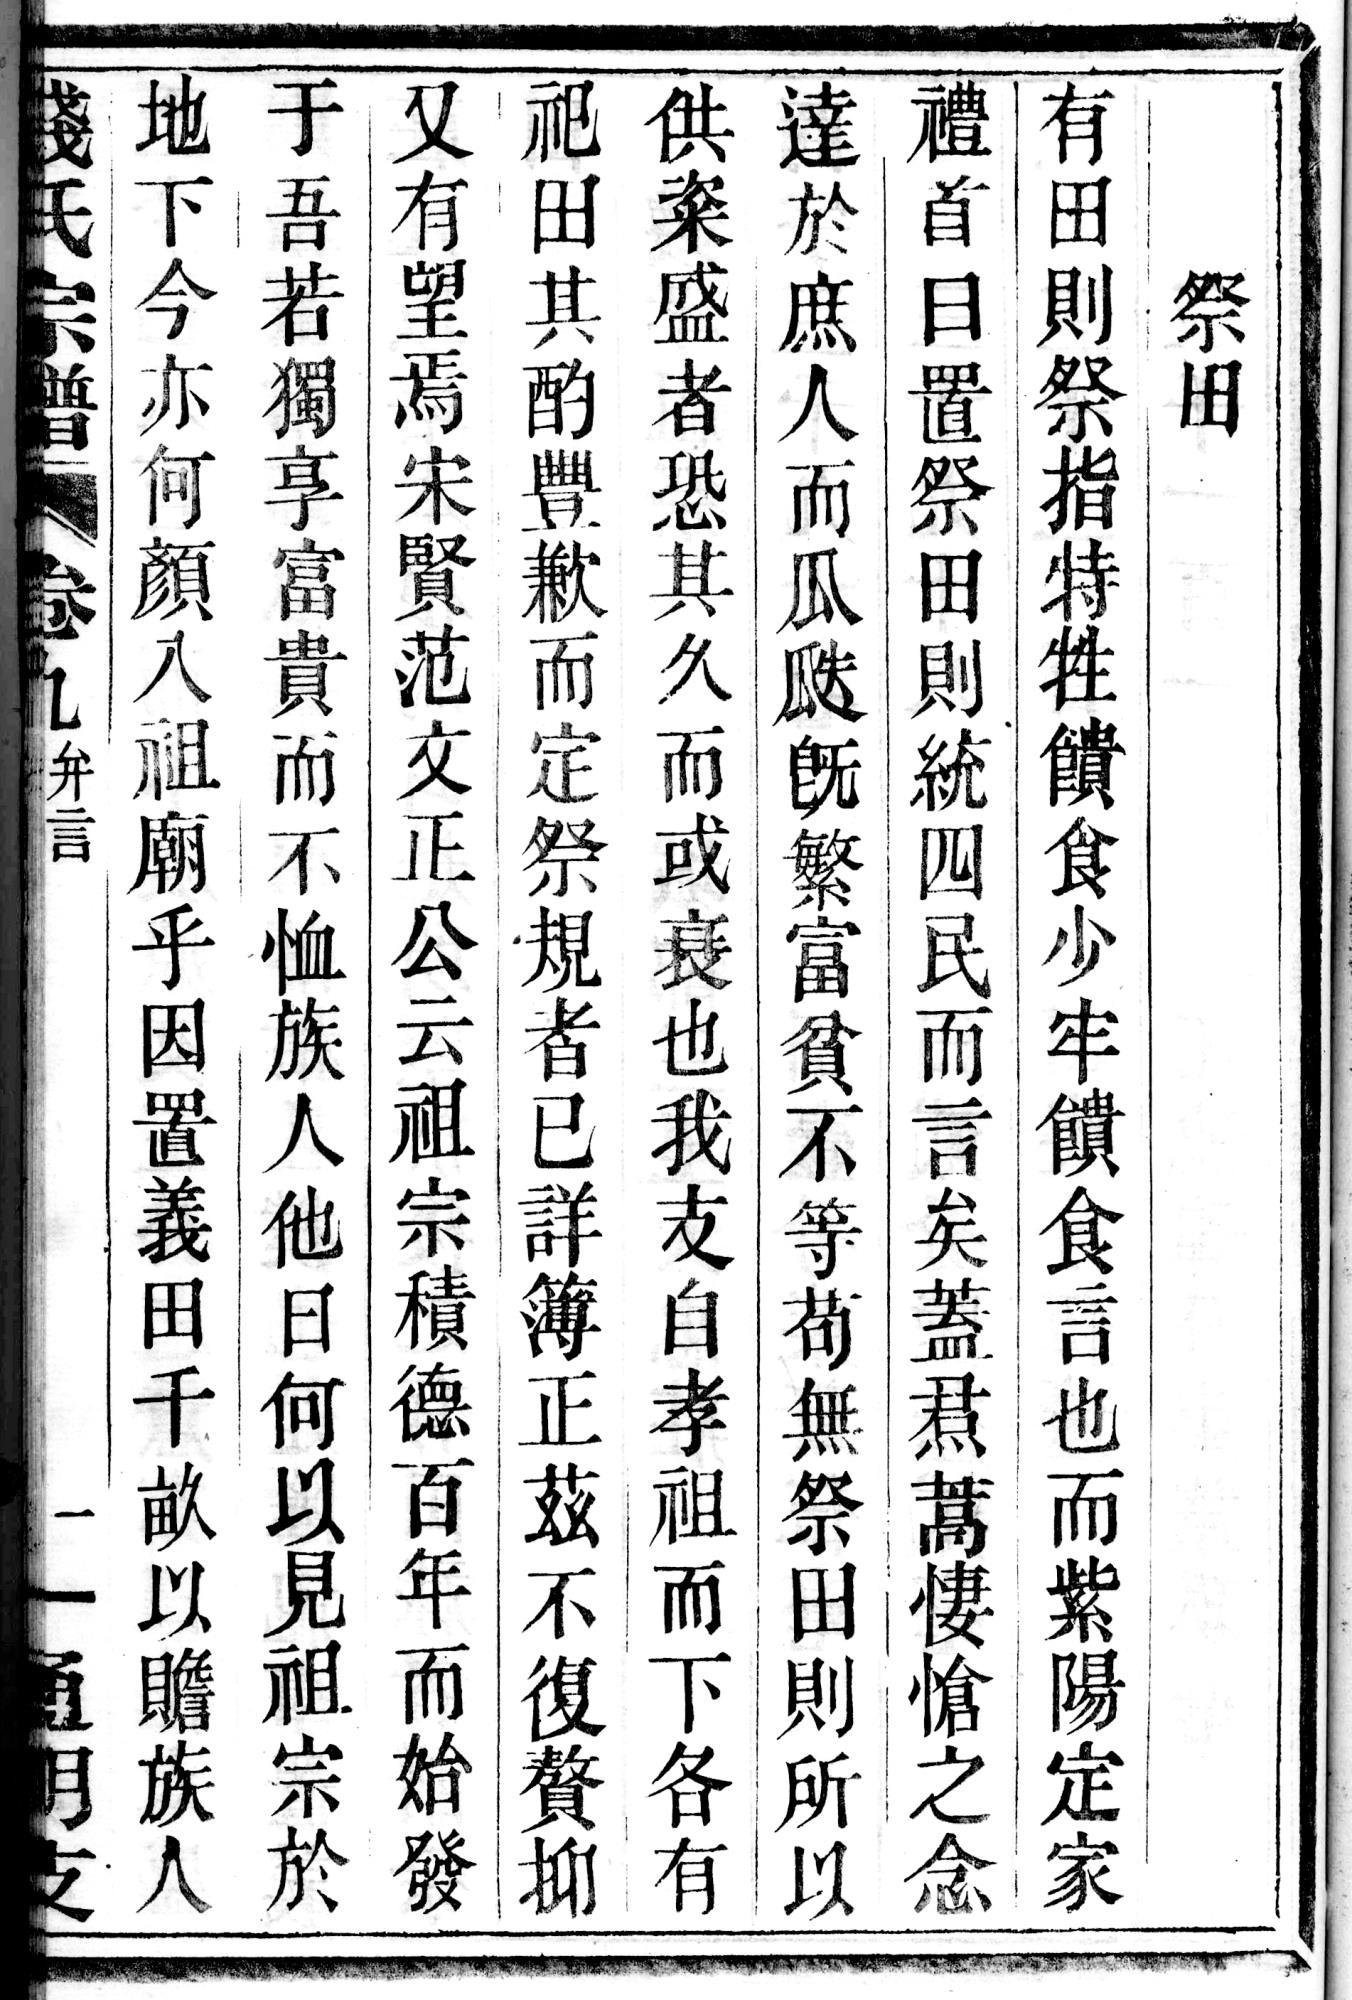 祭田
有田則祭指特牲饋食少牢饋食言也而紫陽定家
禮首曰置祭田則統四民而言矣蓋焄蒿悽愴之念
達於庶人而瓜瓞旣繁富貧不等苟無祭田則所以
供粢盛者恐其久而或衰也我支自孝祖而下各有
祀田其酌豐歉而定祭規者已詳簿正茲不復贅抑
又有望焉宋賢范文正公云祖宗積德百年而始發
于吾若獨享富貴而不恤族人他日何以見祖宗於
地下今亦何顏入祖廟乎因置義田千畝以贍族人
錢氏宗譜 卷九 弁言 一 通明支